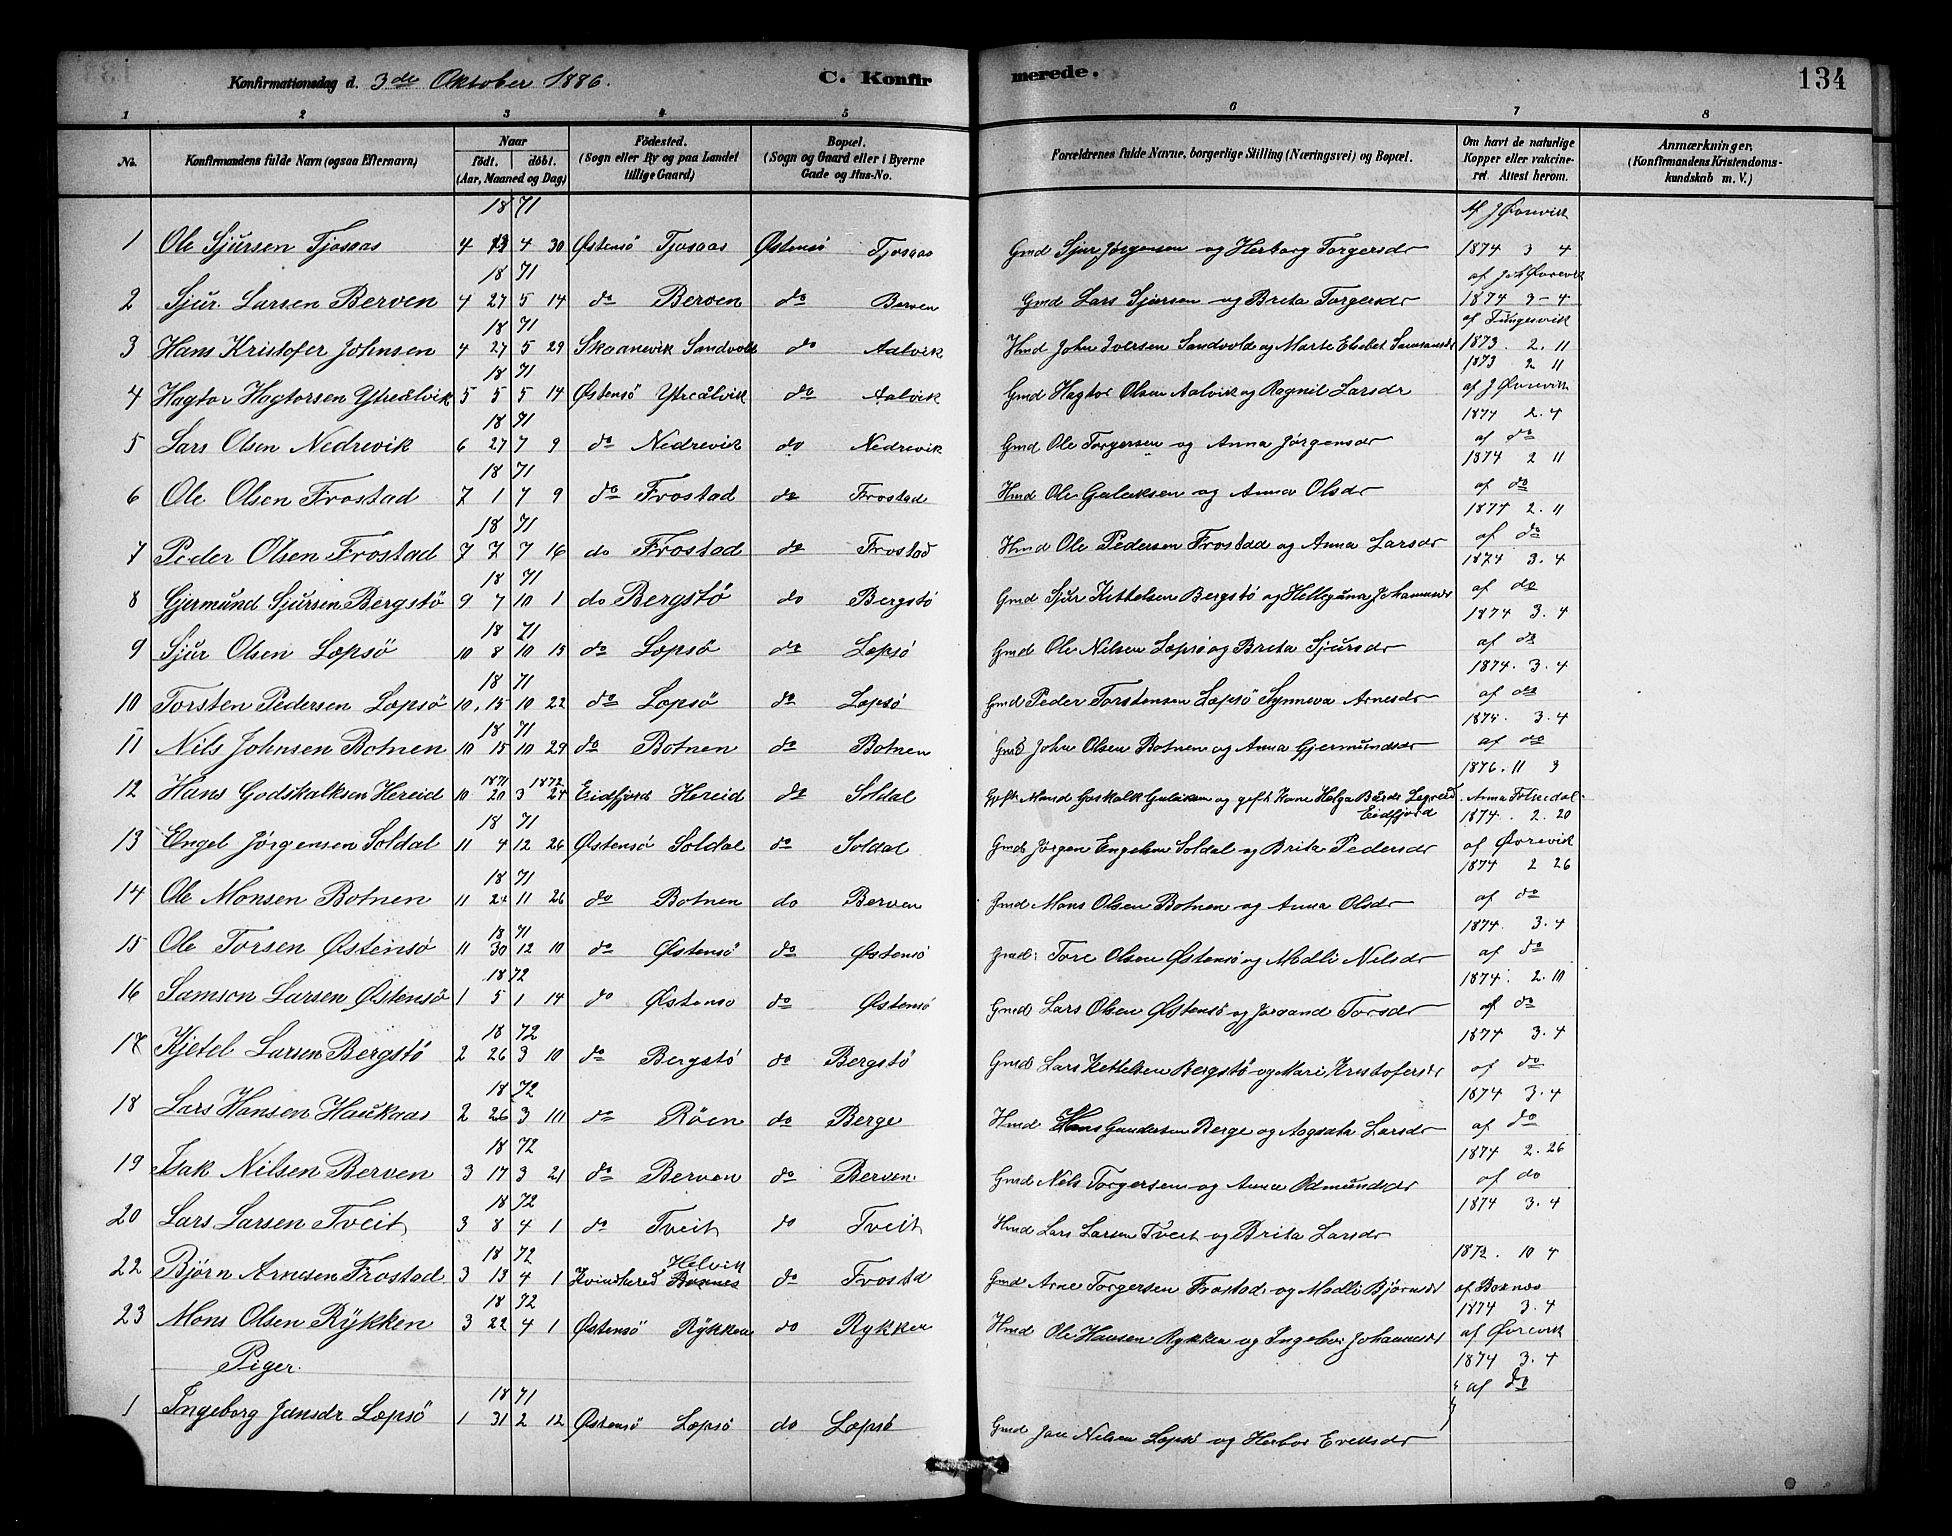 Konfirmationsdag d. 3de Oktober 1886. C. Konfirmerede. 134
1 2 3 4 5 6 7 8
No. Konfirmandens fulde Navn (ogsaa Efternavn) Naar født. døbt. (Aar, Maaned og Dag) Fødested. (Sogn eller By og paa Landet tillige Gaard) Bopæl. (Sogn og Gaard eller i Byerne Gade og Hus-No. Forældrenes fulde Navne, borgerlige Stilling (Næringsvei) og Bopæl. Om havt de naturlige Kopper eller vakcineret. Attest herom. Anmærkninger. (Konfirmandens Kristendomskundskab m. V.)
18 71 Af J Øvrevik
1 Ole Sjursen Tjosaas 4 4 30 Østensö Tjosaas Østensö Tjosaas Gmd Sjur Jørgensen og Herborg Torgersdr 1874 3 4
18 71 af Øvrevik
2 Sjur Larsen Berven 4 27 5 14 do Berven do Berven Gmd Lars Sjursen og Brita Torgersdr 1874 3-4
18 71 af Tungesvik
3 Hans Kristofer Johnsen 4 27 5 29 Skaanevik Sandvold do Aalvik Hmd John Iversen Sandvold og Marte Elisbet Samsonsdr 1873. 2. 11
18 71 1873 2 11
4 Hagtor Hagtorsen Ytreålvik 5 5 5 14 Østensö Ytreålvik do Aalvik Gmd Hagtor Olsen Aalvik og Ragnil Larsdr af J Øvrevik
18 71 1874 2. 4
5 Lars Olsen Nedrevik 6 27 7 9 do Nedrevik do Nedrevik Gmd Ole Torgersen og Anna Jørgensdr af do
18 71 1874 2 11
6 Ole Olsen Frostad 7 1 7 9 do Frostad do Frostad Hmd Ole og Anna Olsdr af do
18 71 1874 2. 11
7 Peder Olsen Frostad 7 7 7 16 do Frostad do Frostad Hmd Ole Pedersen Frostad og Anna Larsdr af do
18 71 1874 3. 4
8 Gjermund Sjursen Bergstö 9 7 10 1 do Bergstö do Bergstö Gmd Sjur Kittelsen Bergstö og Helleguna Johannesdr af do
18 71 1874 3. 4
9 Sjur Olsen Lepsö 10 8 10 15 do Lepsö do Lepsö Gmd Ole Nilsen Lepsö og Brita Sjursdr af do
18 71 1874. 3. 4
10 Torsten Pedersen Lepsö 10. 15 10 22 do Lepsö do Lepsö Gmd Peder Torstensen Lepsö Synneva Arnesdr af do
18 71 1874. 3. 4
11 Nils Johnsen Botnen 10 15 10 29 do Botnen do Botnen Gmd John Olsen Botnen og Anna Gjermundsdr af do
1871 1872 1876. 11 3
12 Hans Godskalksen Hereid 10 20 3 24 Eidfjord Hereid do Soldal Gift Mand Goskalk og gift Kone Helga Eidfjord Anna Folkedal
18 71 1874. 2. 20
13 Engel Jørgensen Soldal 11 4 12 26 Østensö Soldal do Soldal Gmd Jørgen Engelsen Soldal og Brita Pedersdr af Øvrevik
18 71 1874 2 26
14 Ole Monsen Botnen 11 24 11 26 do Botnen do Berven Gmd Mons Olsen Botnen og Anna Olsdr af do
18 71 1874. 3. 4
15 Ole Torsen Østensö 11 30 12 10 do Østensö do Østensö Gmd Tore Olsen Østensö og Madli Nilsdr af do
18 72 1874. 2. 10
16 Samson Larsen Østensö 1 5 1 14 do Østensö do Østensö Gmd Lars Olsen Østensö og Jorand Torsdr af do
18 72 1874 3. 4
17 Kjetel Larsen Bergstö 2 26 3 10 do Bergstö do Bergstö Gmd Lars Kettelsen Bergstö og Mari Kristofersdr af do
18 72 1874 3. 4
18 Lars Hansen Haukaas 2 26 3 10 do Röen do Berge Hmd Hans Gundersen Berge og Aagaata Larsdr af do
18 72 1874 2. 26
19 Isak Nilsen Berven 3 17 3 21 do Berven do Berven Gmd Nels Torgersen og Anna Odmundsdr af do
18 72 1874 3. 4
20 Lars Larsen Tveit 3 8 4 1 do Tveit do Tveit Hmd Lars Larsen Tveit og Brita Larsdr
18 72 Helvik 1872. 10 4
22 Bjørn Arnesen Frostad 3 13 4 1 Kvindhered do Frostd Gmd Arne Torgersen Frostad og Madli Bjørnsdr af Boxnes
18 72 1874 3. 4
23 Mons Olsen Rykken 3 22 4 1 Østensö Rykken do Rykken Hmd Ole Hansen Rykken og Ingebor Johannesdr af Øvrevik
Piger. 1874 3. 4
18 71 af do
1 Ingeborg Jansdr Lepsö 1 31 2 12 Østensö Lepsö do Lepsö Gmd Jan Nilsen Lepsö og Herbor Eriksdr